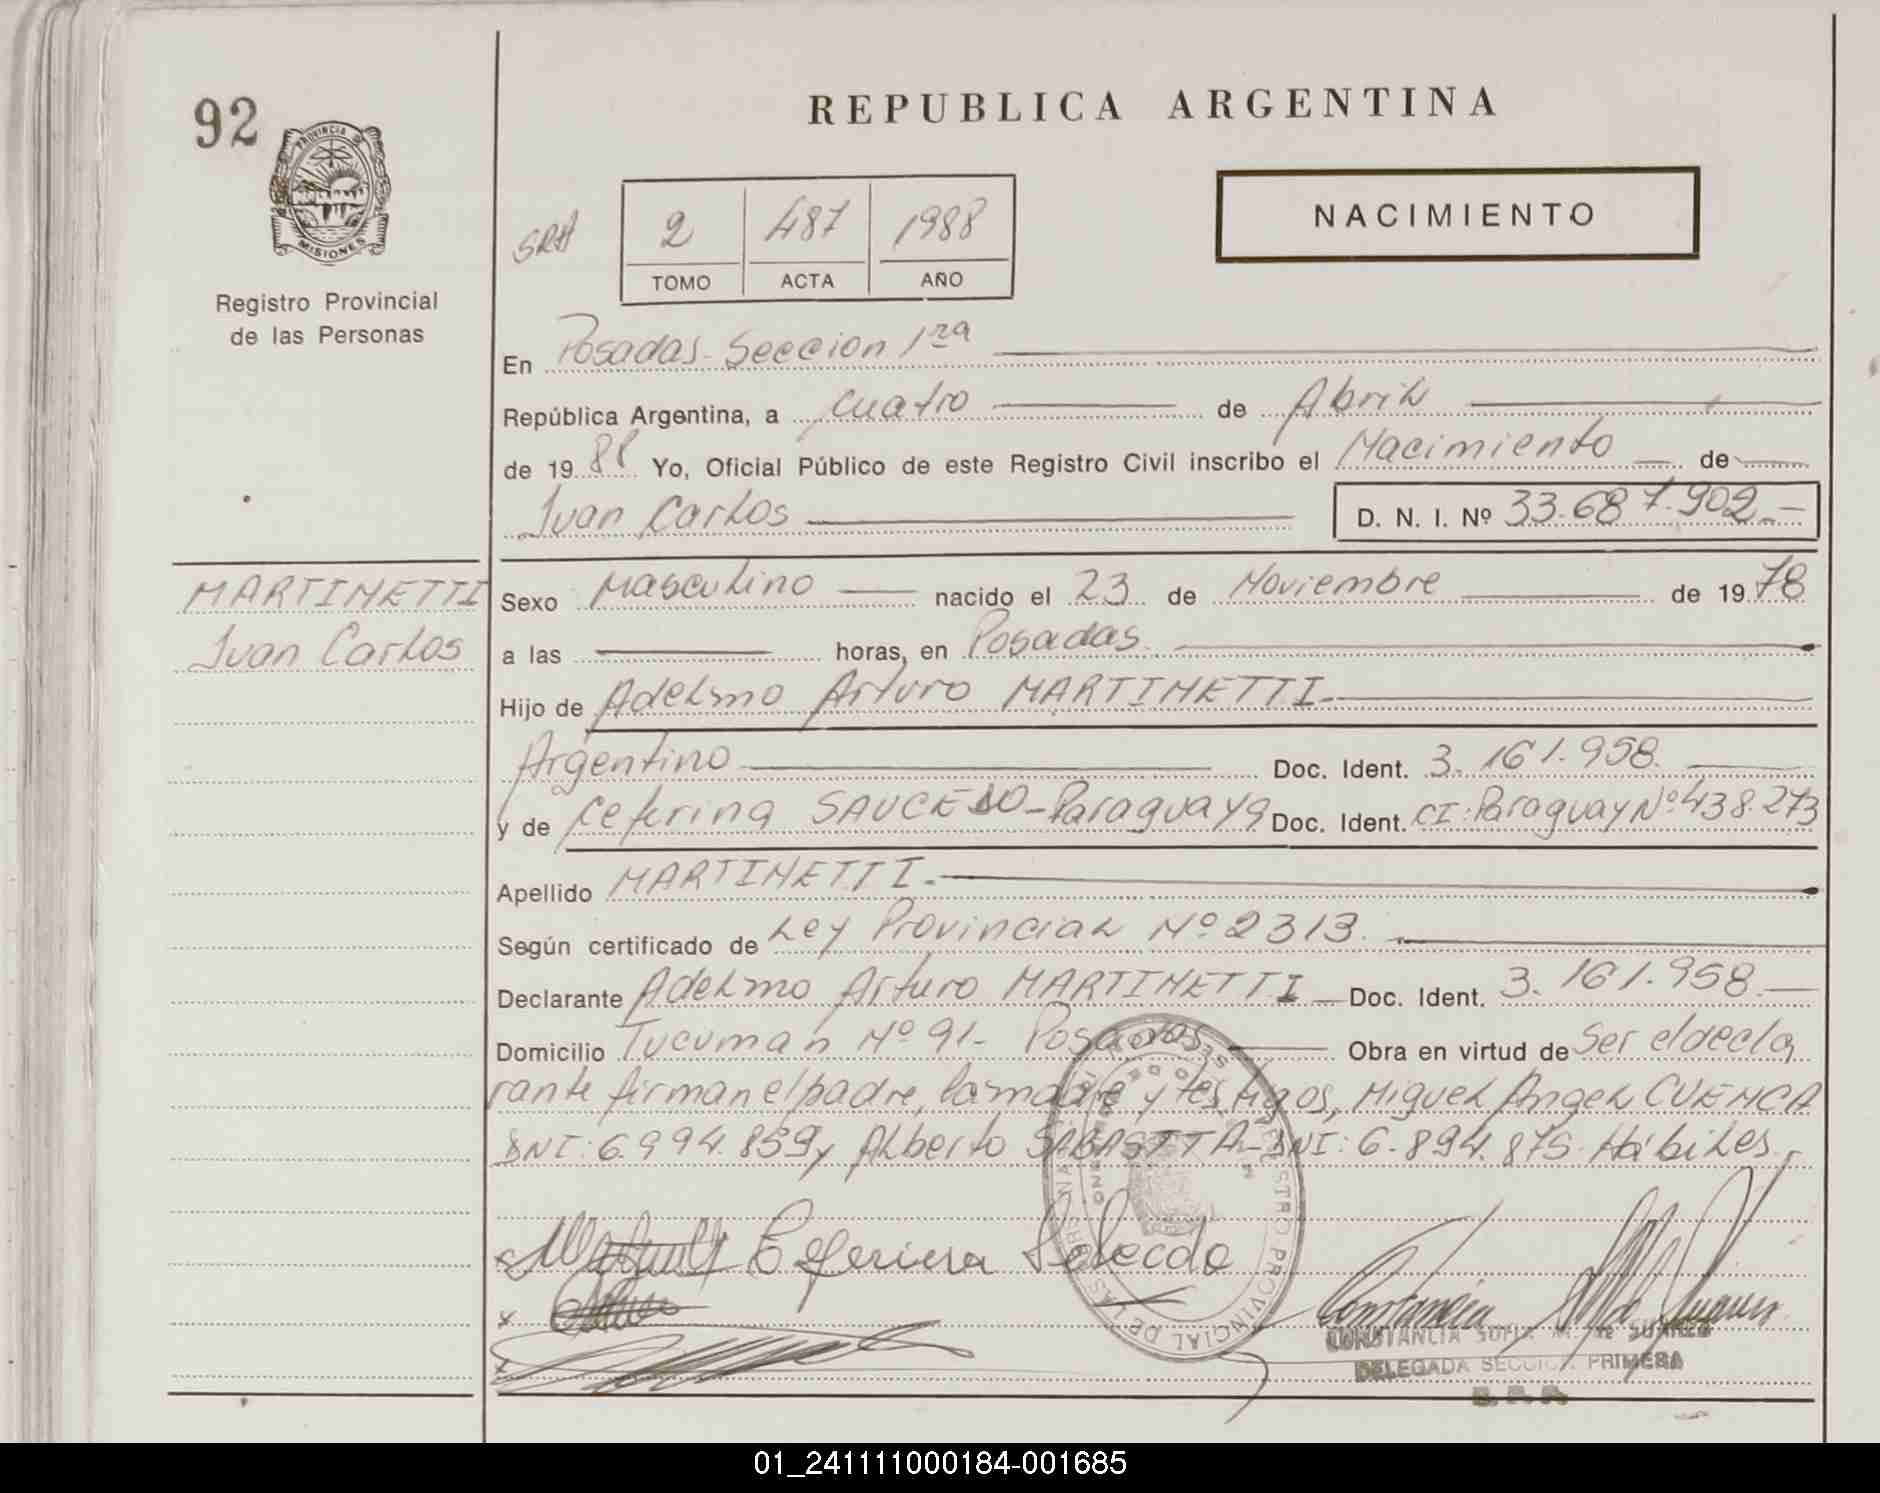 92
PROVINCIA DE
MISIONES
Registro Provincial
de las Personas
REPUBLICA ARGENTINA
NACIMIENTO
SRA
2 487 1988
TOMO ACTA AÑO
En Posadas - Seccion 1ra
República Argentina, a cuatro de Abril
de 1988 Yo, Oficial Público de este Registro Civil inscribo el Nacimiento de
Juan Carlos D. N. I. Nº 33.687.902.-
MARTINETTI
Juan Carlos
Sexo Masculino nacido el 23 de Noviembre de 1978
a las horas, en Posadas
Hijo de Adelmo Arturo MARTINETTI.-
Argentino Doc. Ident. 3.161.958.
y de Ceferina SAUCEDO - Paraguaya Doc. Ident. CI: Paraguay Nº 438.273
Apellido MARTINETTI.-
Según certificado de Ley Provincial Nº 2313.
Declarante Adelmo Arturo MARTINETTI - Doc. Ident. 3.161.958.-
Domicilio Tucuman Nº 91 - Posadas Obra en virtud de Ser el decla
rante firman el padre, la madre y testigos, Miguel Angel CUENCA
DNI: 6.994.859 y Alberto SABASTTA - DNI: 6.894.875. Hábiles.
CONSTANCIA SOFIA M. de SUAREZ
DELEGADA SECCION PRIMERA
01_241111000184-001685